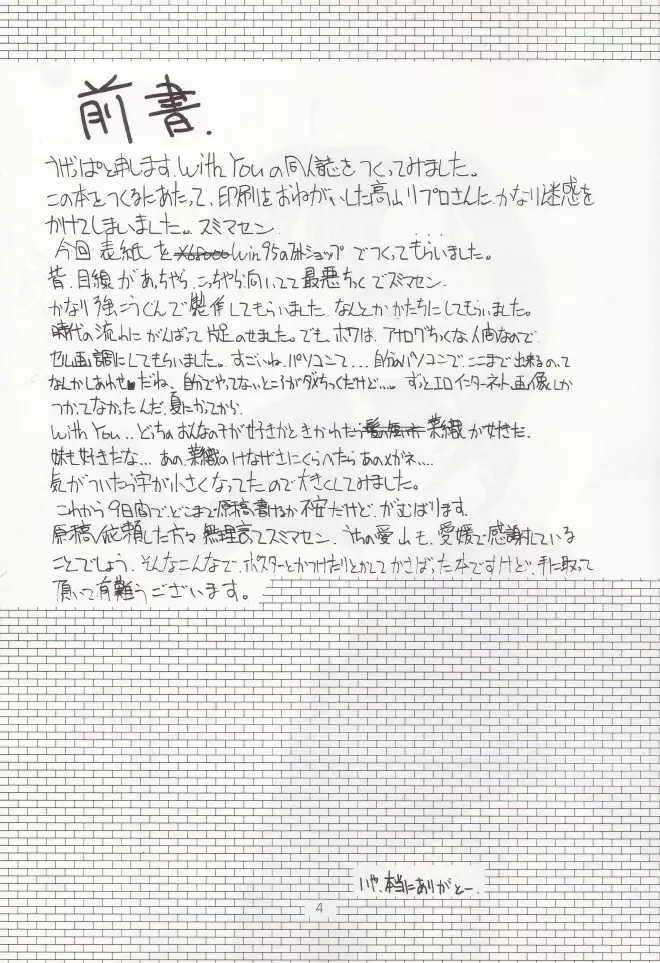 前書.
うげっぱと申します。With Youの同人誌をつくってみました。
この本をつくるにあたって、印刷をおねがいした高山リプロさんに、かなり迷惑を
かけてしまいました。スミマセン.
今回 表紙を X68000 Win95のフォトショップ でつくってもらいました。
昔、目線があっちゃら、こっちゃら向いてて最悪ちくでズミマセン.
かなり強こうぐんで製作してもらいました. なんとかかたちにしてもらいました。
時代の流れにがんばって片足のせました。でも、ボクは、アナログちくな人間なので
セル画調にしてもらいました。すごいね、パソコンて...自分のパソコンで、ここまで出来るのって
なんかしあわせ♥だね、自分でやってないところがダメちっくだけど...。ずっとエロインターネット画像しか
つかってなかったんだ.夏にかってから.
With You..どっちのおんなの子が好きかときかれたら 菜織が好きだ.
妹も好きだな... あの、菜織のけなげさにくらべたらあのメガネ....
気がついたら字が小さくなってたので大きくしてみました。
これから9日間で、どこまで原稿書けるか不安だけど、がむばります.
原稿依頼した方々 無理言ってスミマセン. うちの愛山も、愛媛で感謝している
ことでしょう. そんなこんなで、ポスターとかつけたりとかしてかさばった本ですけど、手に取って
頂いて有難うございます。
いや、本当にありがとー.
4